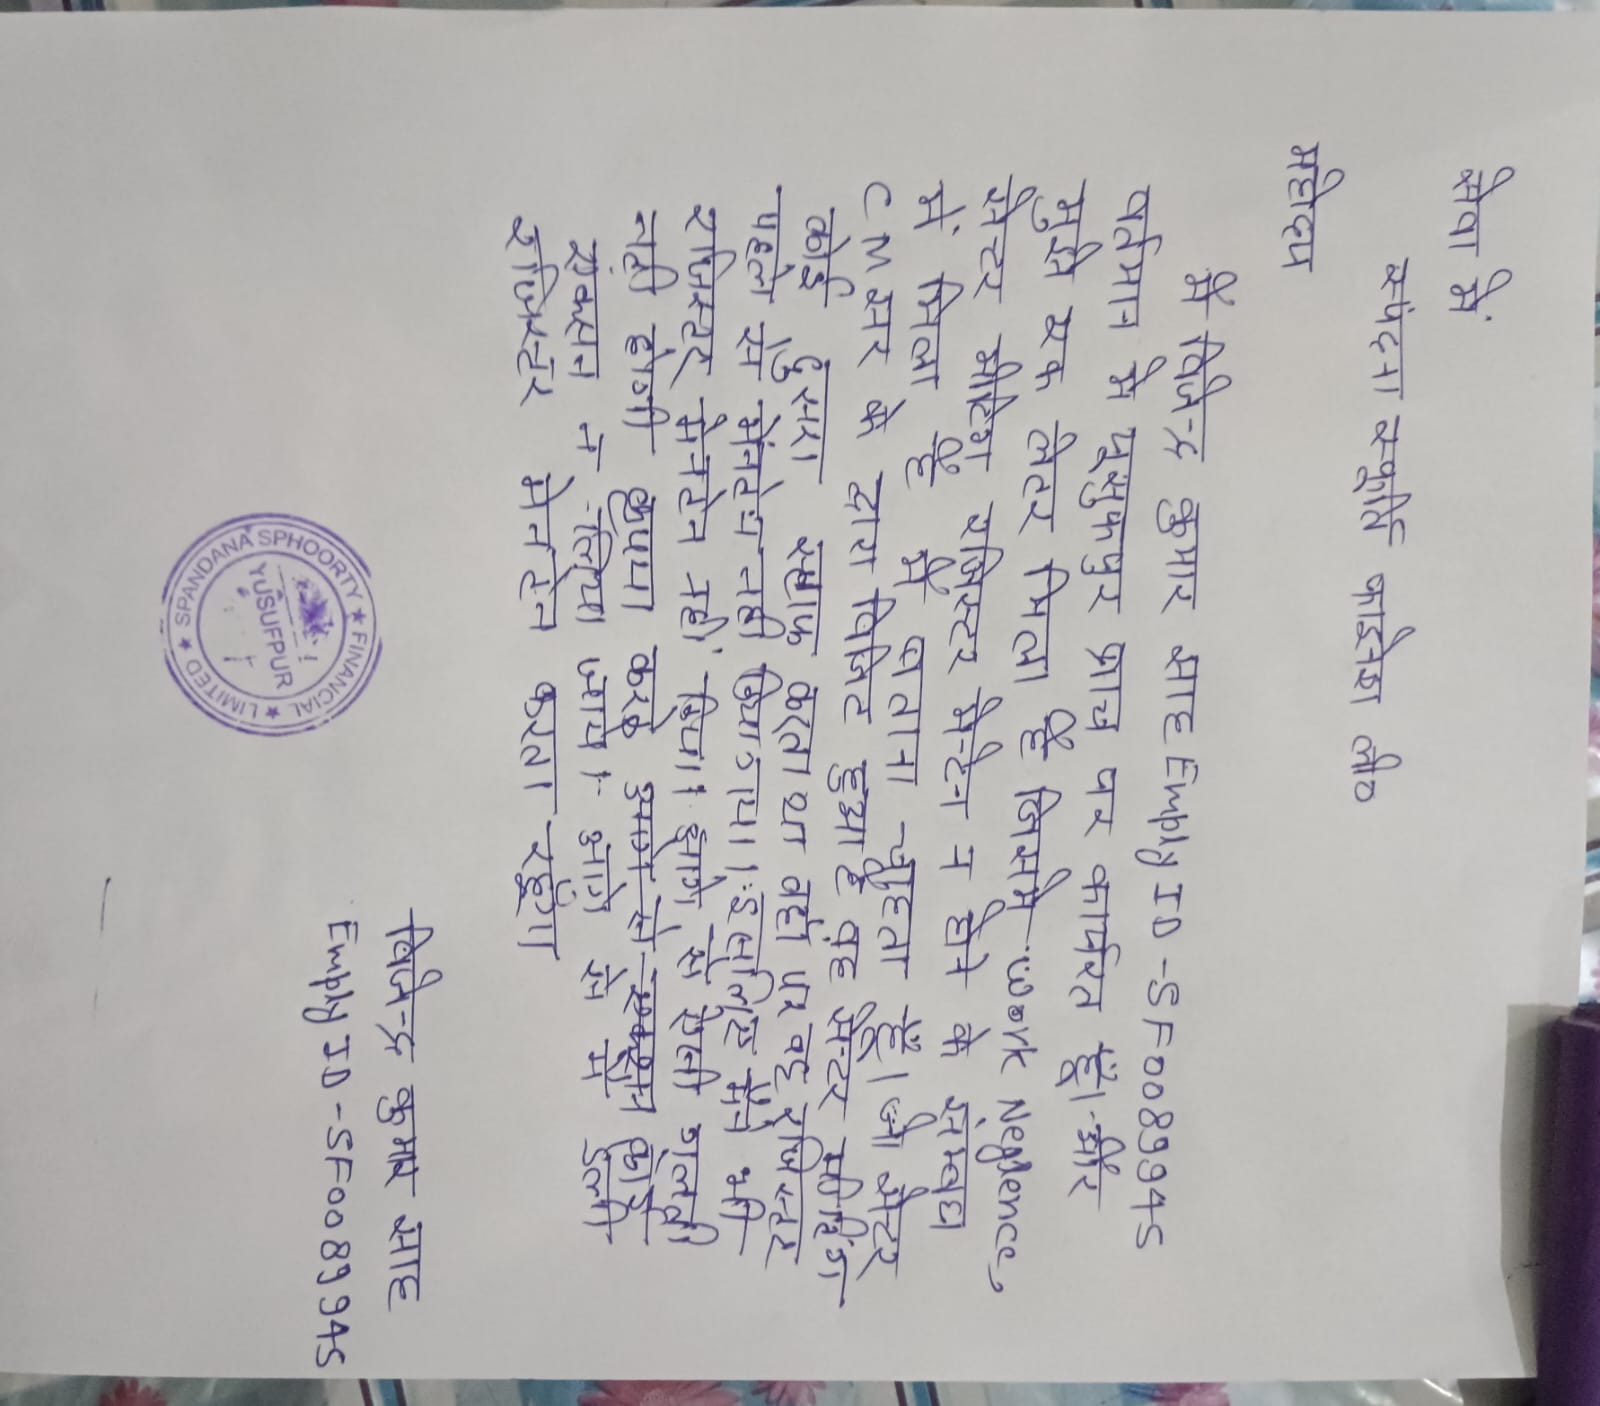 सेवा में
स्पंदना स्फूर्ति फाईनेंश ली०
महोदय
मैं विजेन्द्र कुमार साह Emply ID - SF0089945
वर्तमान में यूसुफपुर ब्रांच पर कार्यरत हूँ। और
मुझे एक लेटर मिला हूँ जिसमें work Neglence,
सेन्टर मीटिंग रजिस्टर मेन्टेन न होने के सम्बंध
में मिला हूँ मैं बताना चाहता हूँ। जो सेन्टर
CM सर के द्वारा विजिट हुआ है वह सेन्टर मीटिंग
कोई दुसरा स्टाफ करता था वहाँ पर वह रजिस्टर
पहले से मेनटेन नही किया गया। इसलिए मैंने भी
रजिस्टर मेनटेन नहीं किया। आगे से ऐसी गलती
नही होगी कृपया करके हमारे
एक्सन न लिया जाये। आगे से मैं
रजिस्टर मेनटेन करता रहूंगा
विजेन्द्र कुमार साह
Emply ID - SF0089945
SPANDANA SPHOORTY ★ FINANCIAL ★ LIMITED ★
YUSUFPUR